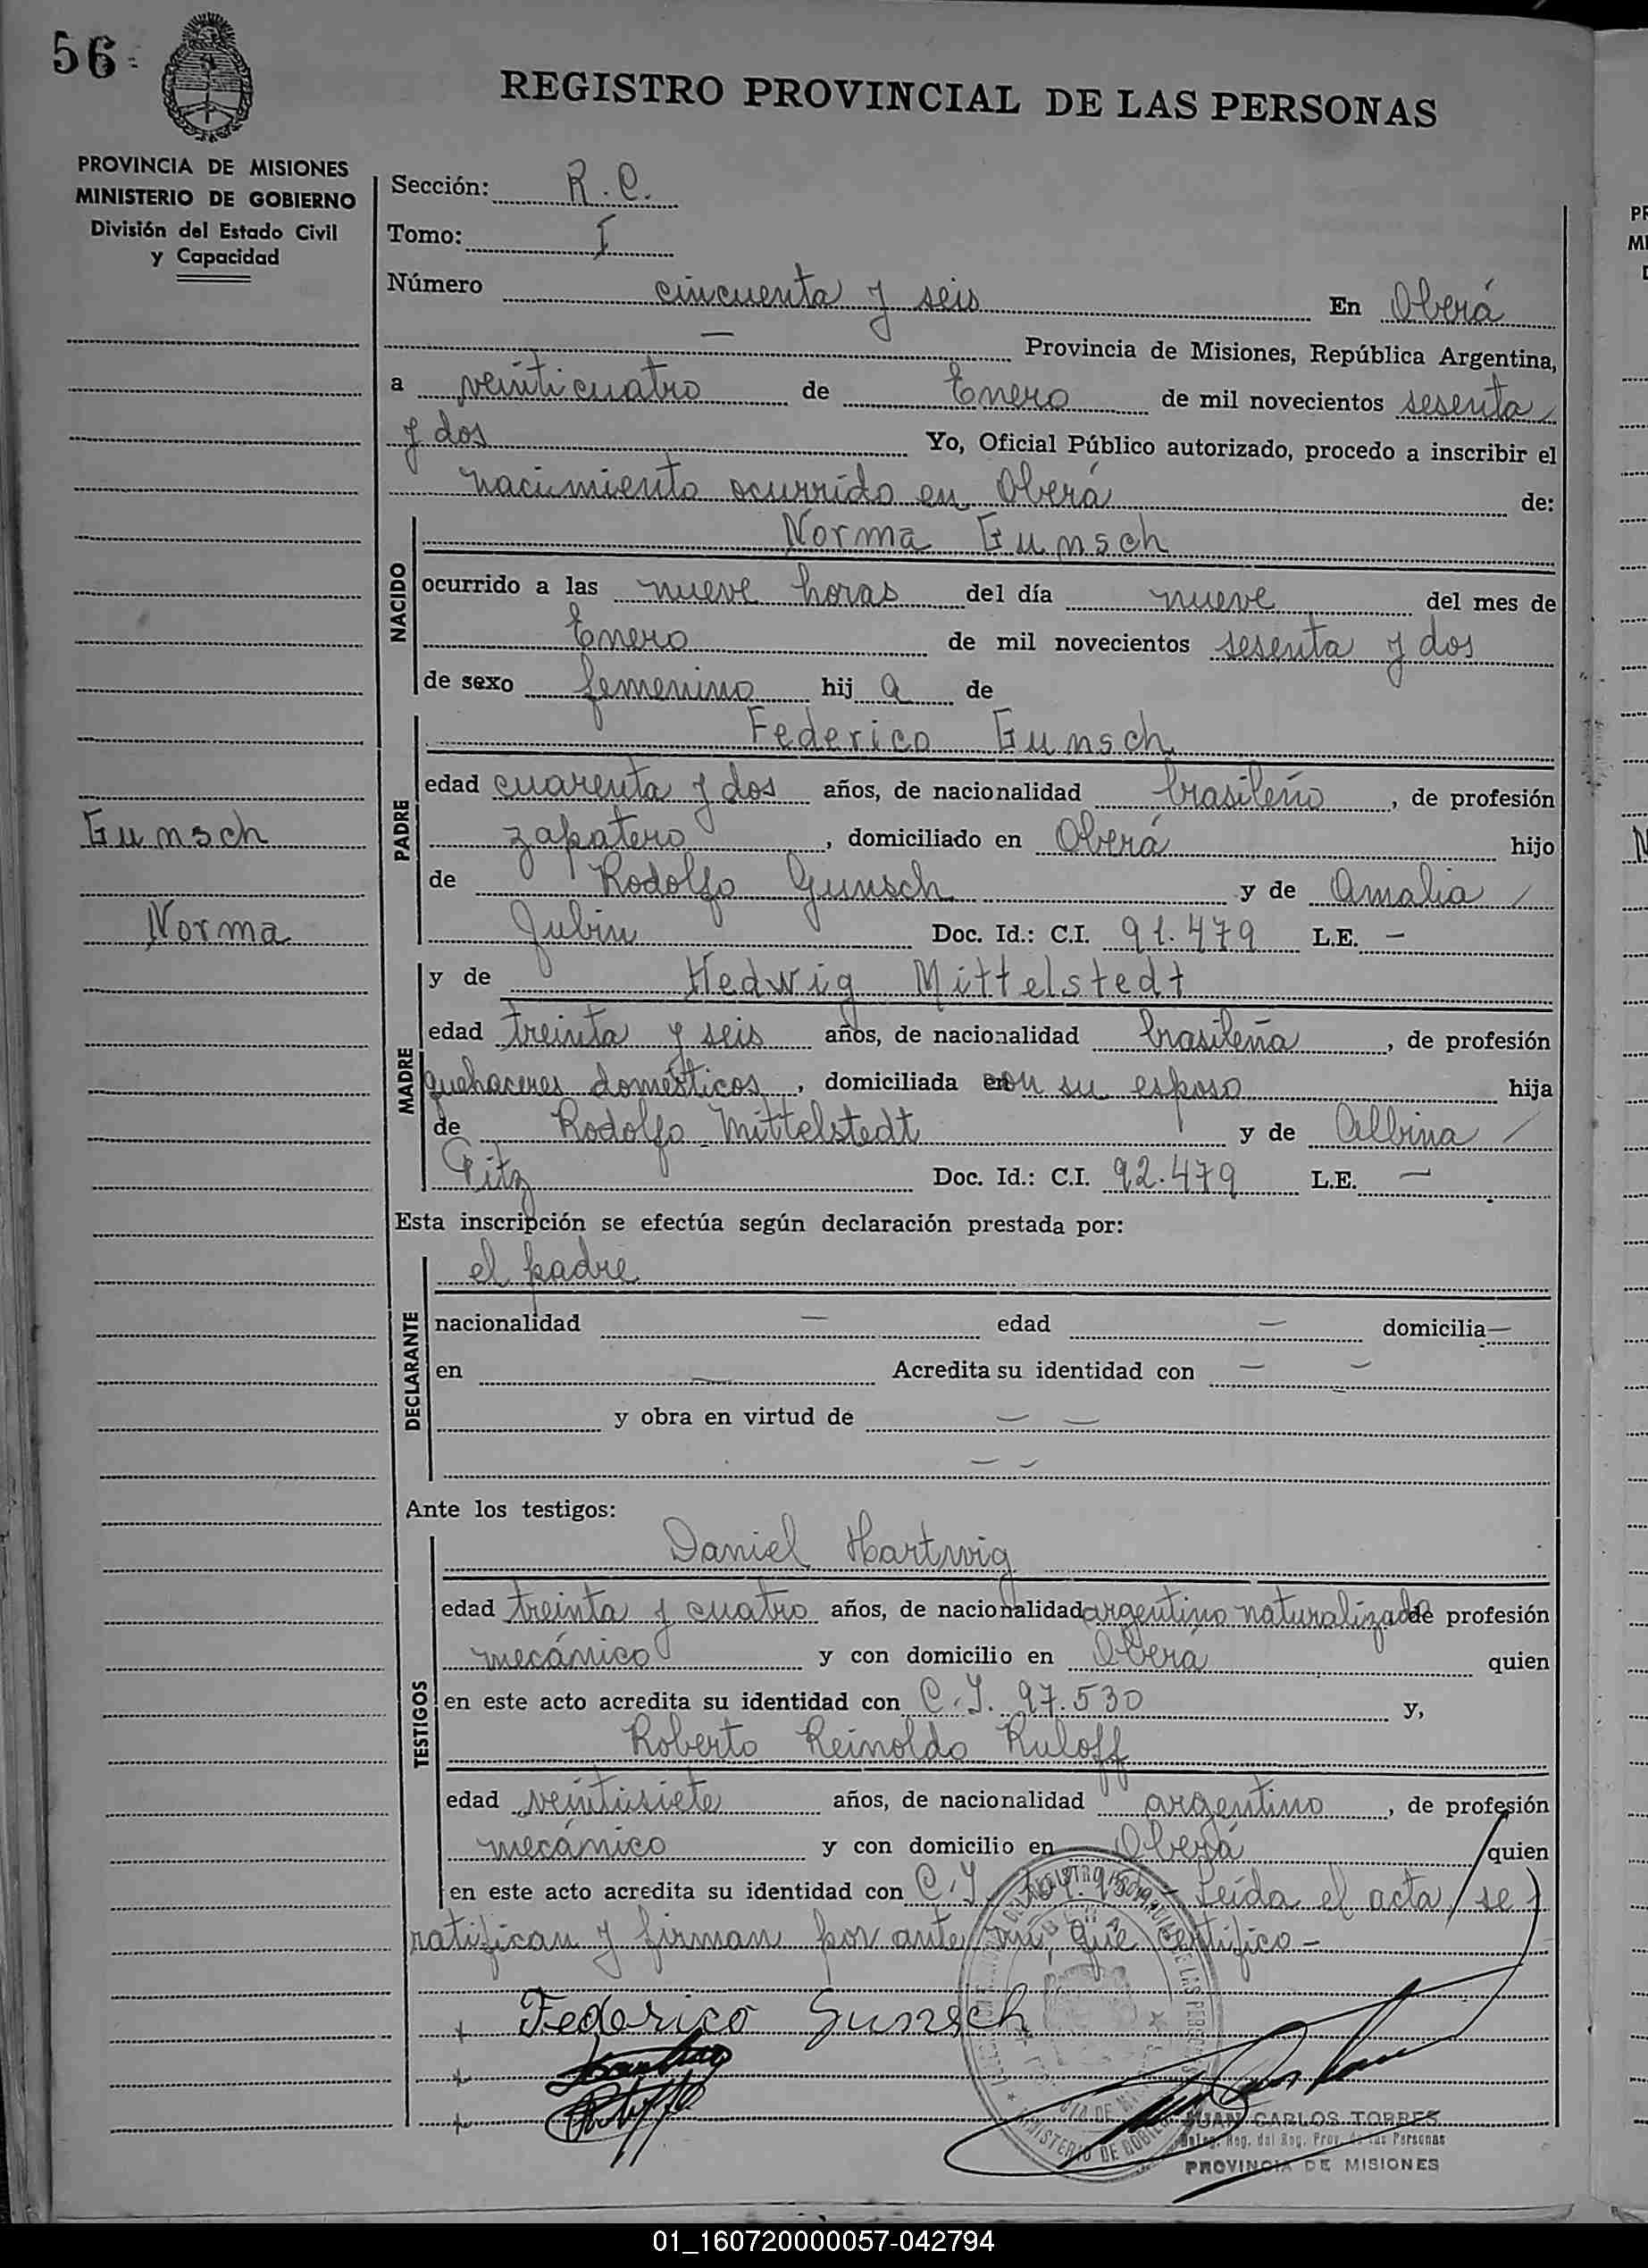 56
REGISTRO PROVINCIAL DE LAS PERSONAS
PROVINCIA DE MISIONES
MINISTERIO DE GOBIERNO
División del Estado Civil
y Capacidad
Sección: R. C.
Tomo: I
Número cincuenta y seis En Oberá
— Provincia de Misiones, República Argentina,
a veinticuatro de Enero de mil novecientos sesenta
y dos Yo, Oficial Público autorizado, procedo a inscribir el
nacimiento ocurrido en Oberá de:
NACIDO
Norma Gunsch
ocurrido a las nueve horas del día nueve del mes de
Enero de mil novecientos sesenta y dos
de sexo femenino hij a de
PADRE
Federico Gunsch
edad cuarenta y dos años, de nacionalidad brasileño, de profesión
zapatero, domiciliado en Oberá hijo
de Rodolfo Gunsch y de Amalia
Jubin Doc. Id.: C.I. 91.479 L.E. —
Gunsch
Norma
MADRE
y de Hedwig Mittelstedt
edad treinta y seis años, de nacionalidad brasileña, de profesión
quehaceres domésticos, domiciliada con su esposo hija
de Rodolfo Mittelstedt y de Albina
Pitz Doc. Id.: C.I. 92.479 L.E. —
Esta inscripción se efectúa según declaración prestada por:
DECLARANTE
el padre
nacionalidad — edad — domicilia—
en — Acredita su identidad con — —
y obra en virtud de — —
— —
Ante los testigos:
TESTIGOS
Daniel Hartwig
edad treinta y cuatro años, de nacionalidad argentino naturalizado de profesión
mecánico y con domicilio en Oberá quien
en este acto acredita su identidad con C.I. 97.530 y,
Roberto Reinoldo Ruloff
edad veintisiete años, de nacionalidad argentino, de profesión
mecánico y con domicilio en Oberá quien
en este acto acredita su identidad con C.I. Leída el acta se
ratifican y firman por ante mí, que certifico -
Federico Gunsch
JUAN CARLOS TORRES
Deleg. Reg. del Reg. Prov. de las Personas
PROVINCIA DE MISIONES
01_160720000057-042794